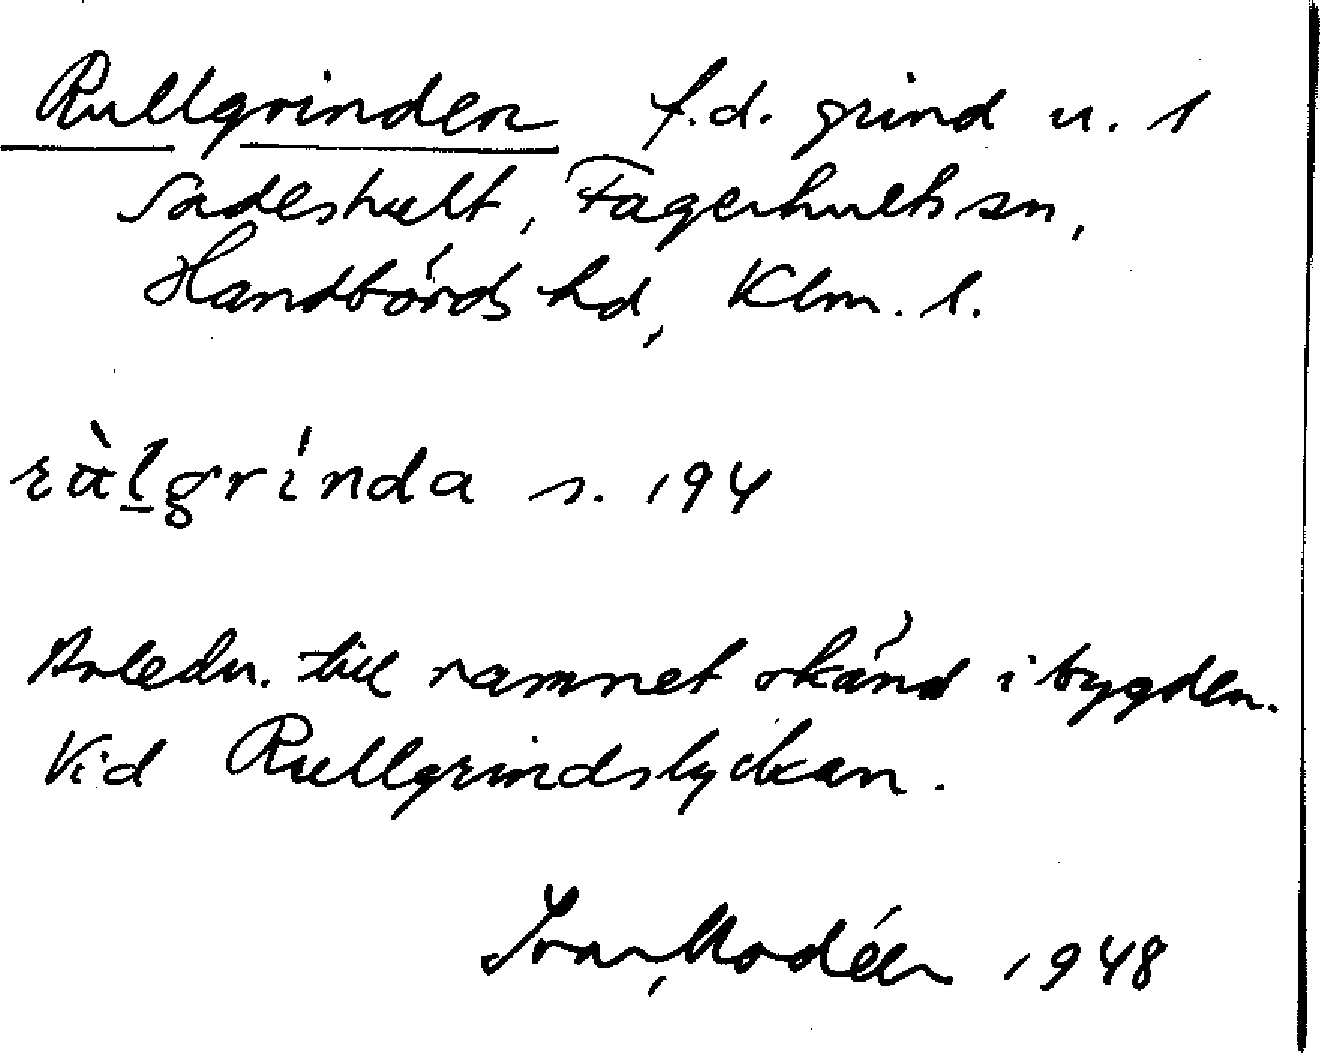 Rullgrinden f.d. grind u. 1
Sadeshult, Fagerhults sn,
Handbörds hd, Klm. l.
rùlgrínda s. 194
Anledn. till namnet okänd i bygden.
Vid Rullgrindslyckan.
Ivar Modéer 1948